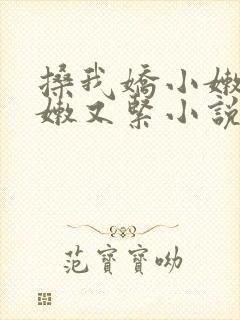 搡我嬌小嫩
嫩又緊小說
范寶寶呦